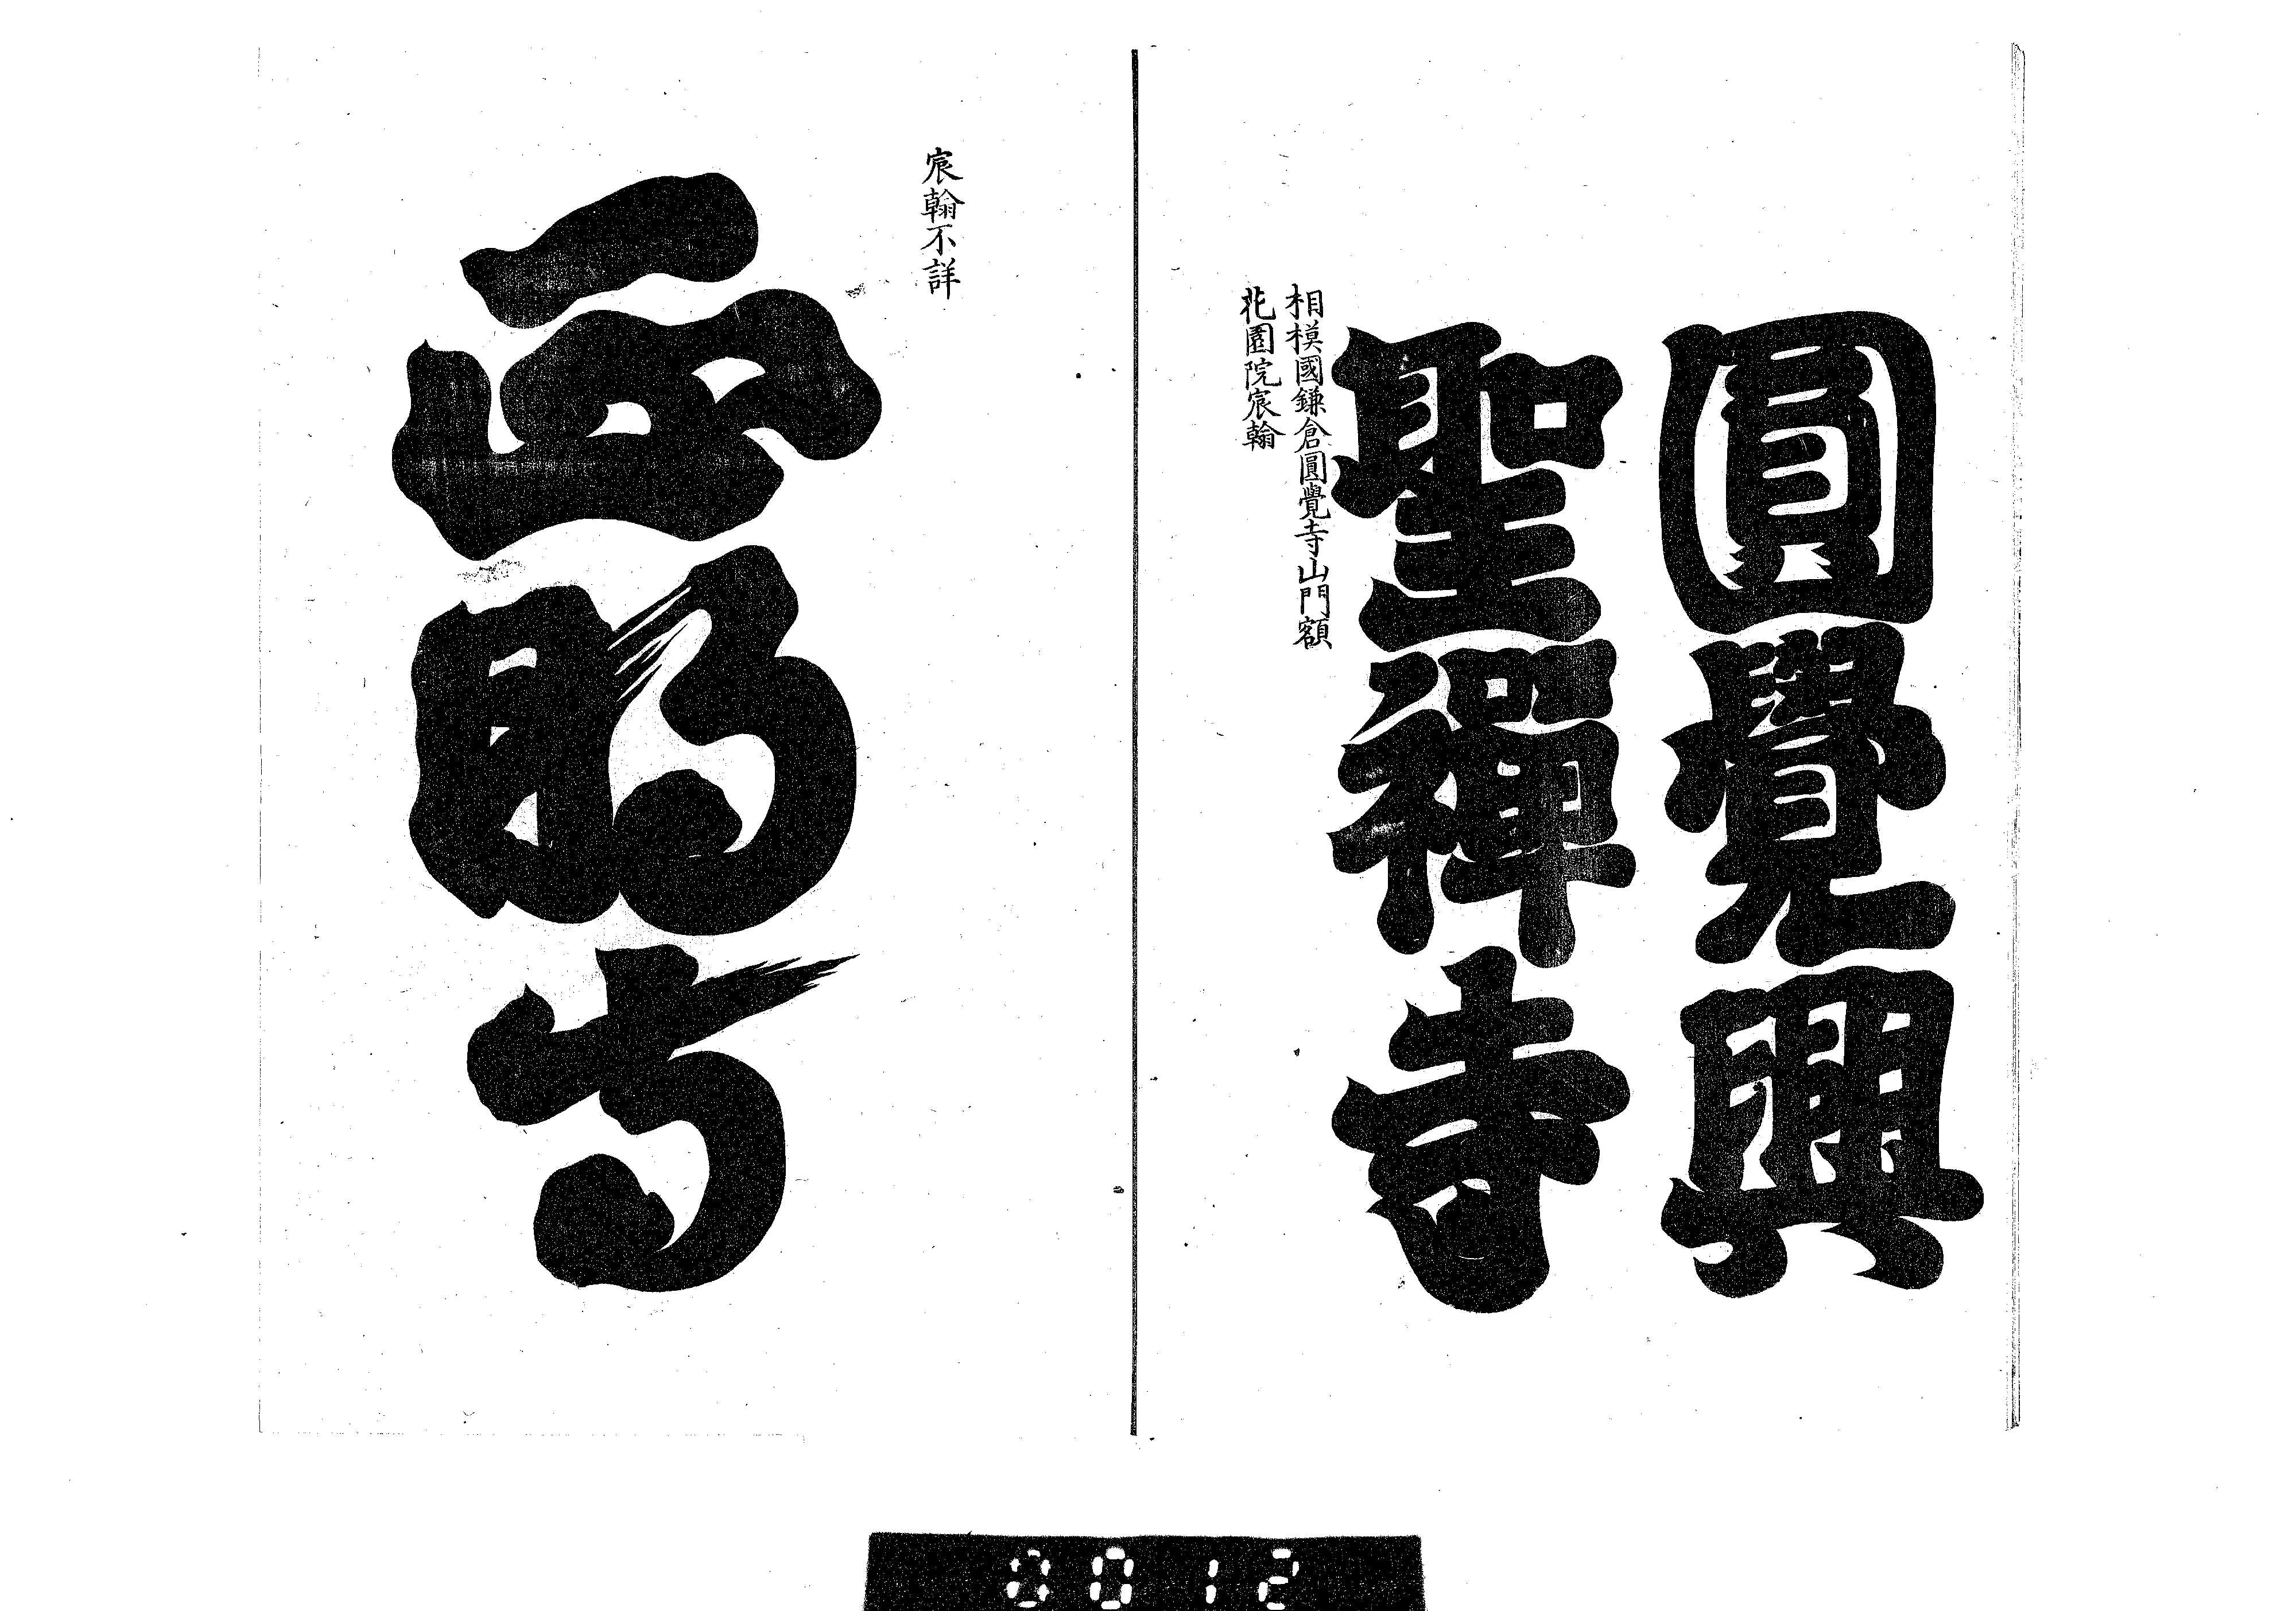 圓覺興
聖禪寺
相模國鎌倉圓覺寺山門額
花園院宸翰
宸翰不詳
西明寺
0012